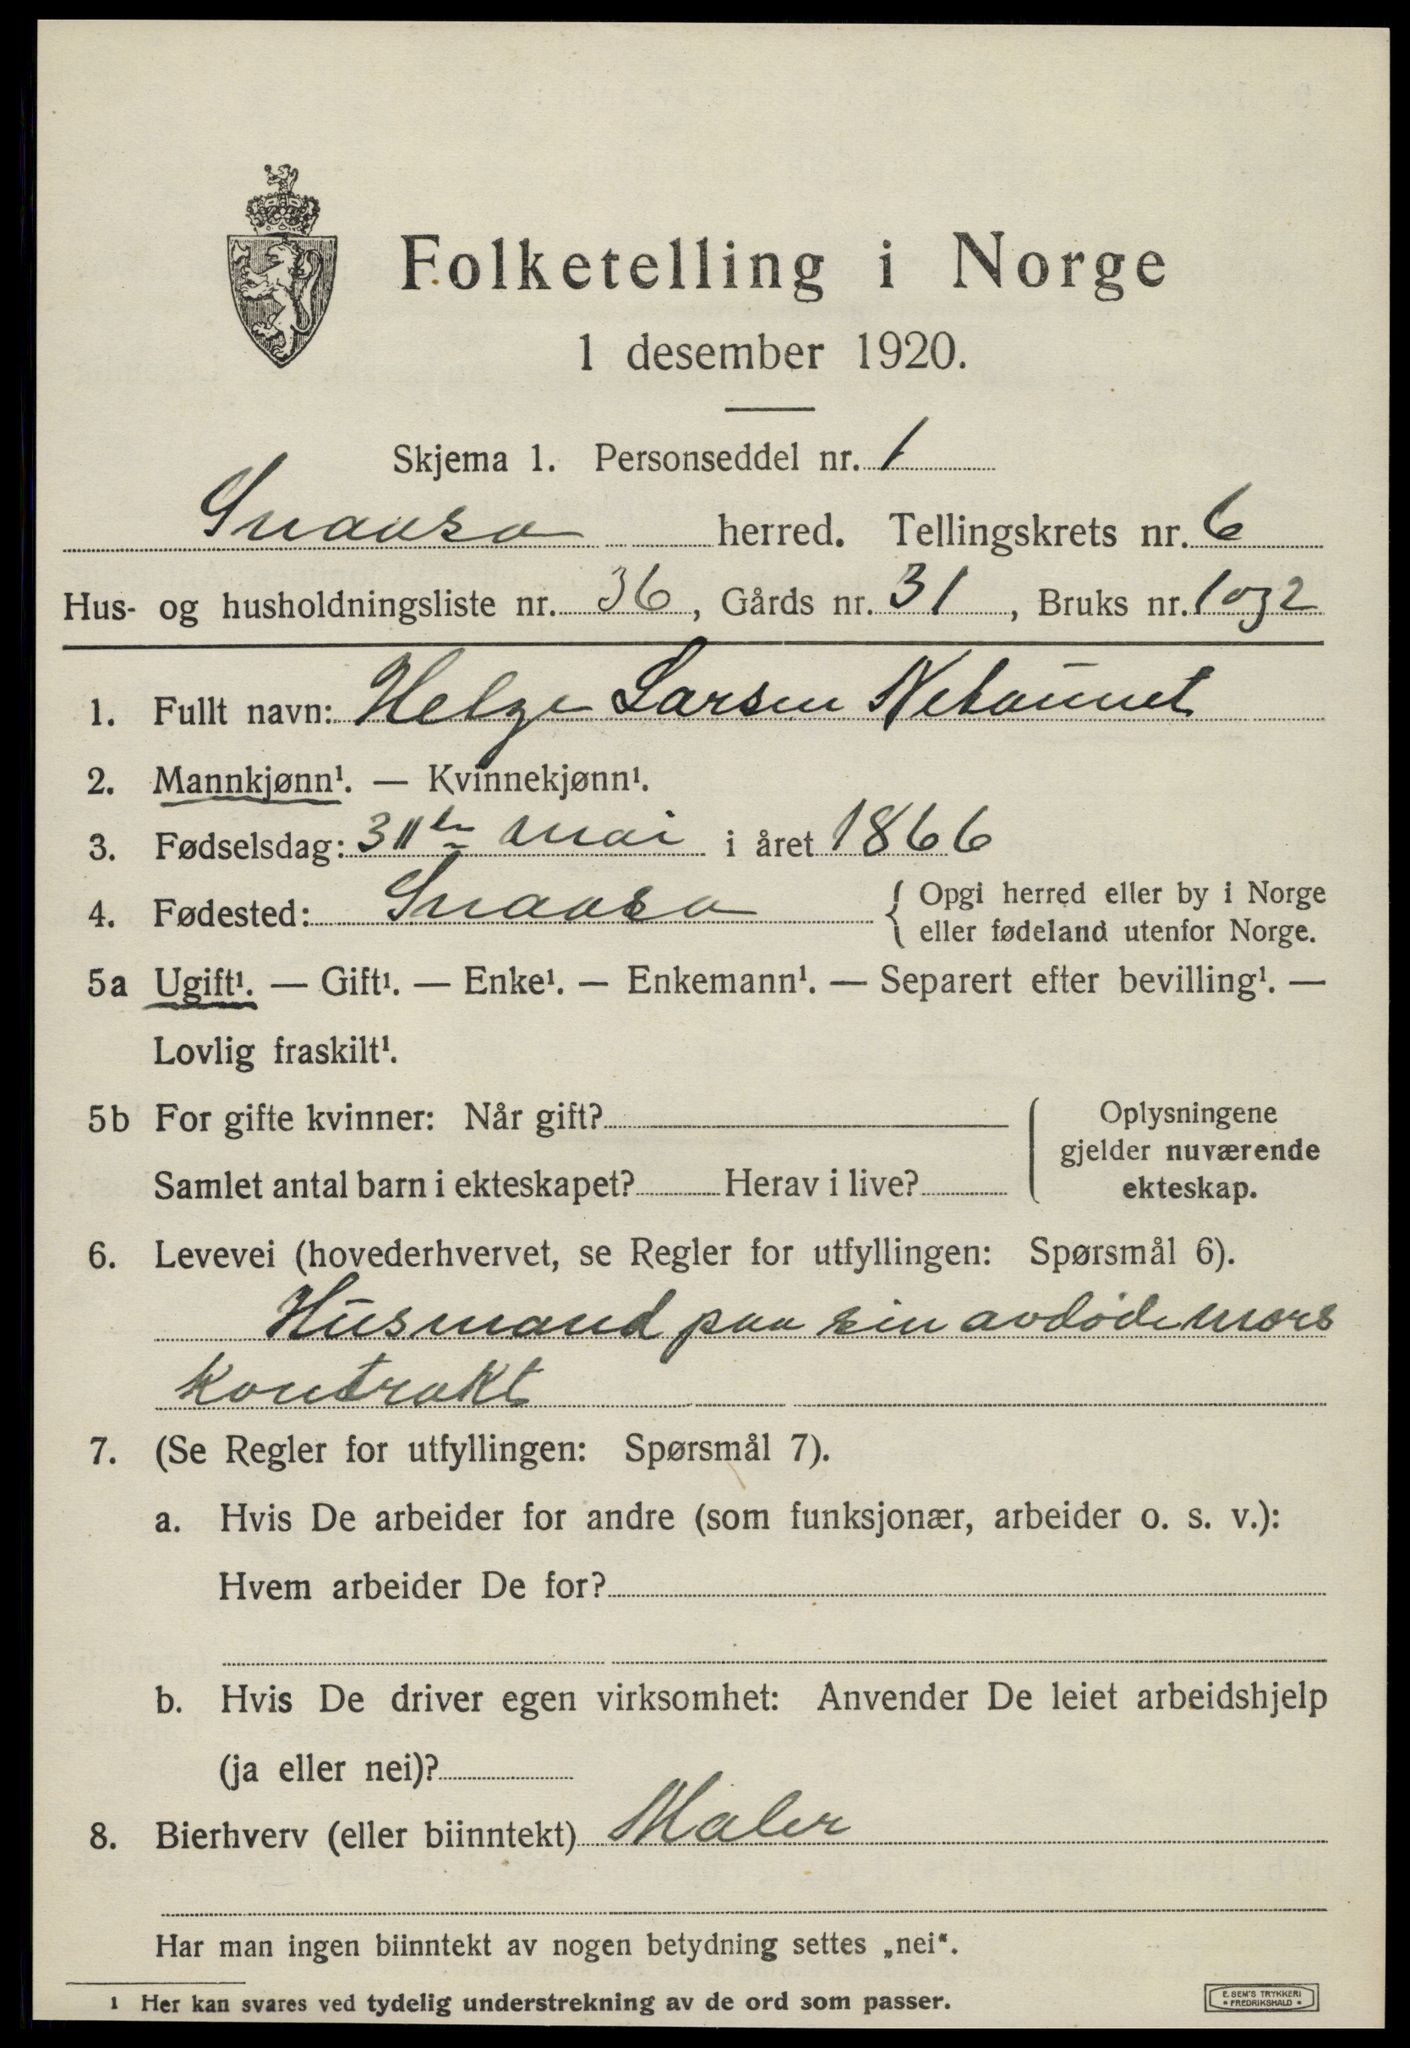 Folketelling i Norge
1 desember 1920.
Skjema 1. Personseddel nr. 1
Snaasa herred. Tellingskrets nr. 6
Hus- og husholdningsliste nr. 36, Gårds nr. 31, Bruks nr. 1 og 2
1. Fullt navn: Helge Larsen
2. Mannkjønn¹. — Kvinnekjønn¹.
3. Fødselsdag: 31te mai i året 1866
4. Fødested: Snaasa { Opgi herred eller by i Norge
eller fødeland utenfor Norge.
5a Ugift¹. — Gift¹. — Enke¹. — Enkemann¹. — Separert efter bevilling¹. —
Lovlig fraskilt¹.
5b For gifte kvinner: Når gift?
Samlet antal barn i ekteskapet? Herav i live?
Oplysningene
gjelder nuværende
ekteskap.
6. Levevei (hovederhvervet, se Regler for utfyllingen: Spørsmål 6).
Husmand paa sin avdøde mors
Kontrakt
7. (Se Regler for utfyllingen: Spørsmål 7).
a. Hvis De arbeider for andre (som funksjonær, arbeider o. s. v.):
Hvem arbeider De for?
b. Hvis De driver egen virksomhet: Anvender De leiet arbeidshjelp
(ja eller nei)?
8. Bierhverv (eller biinntekt) Maler
Har man ingen biinntekt av nogen betydning settes „nei“.
¹ Her kan svares ved tydelig understrekning av de ord som passer.
E. SEM'S TRYKKERI
FREDRIKSHALD